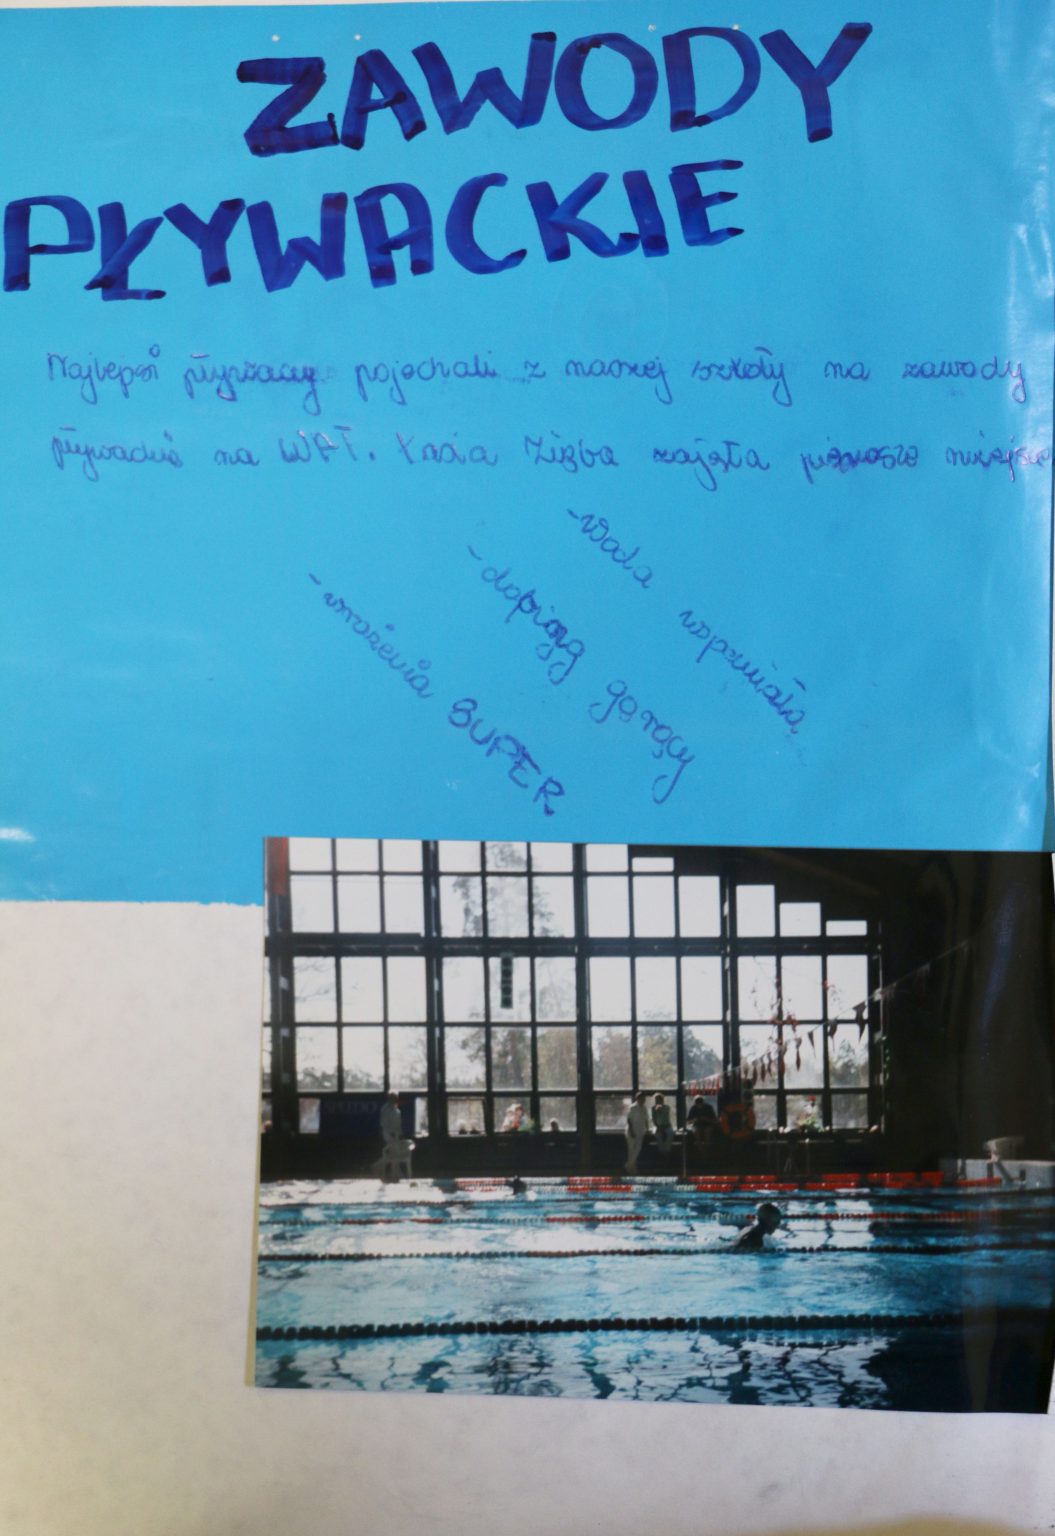 ZAWODY
PŁYWACKIE
Najlepsi pływacy pojechali z naszej szkoły na zawody
pływackie na WAT. Kasia Zięba zajęła pierwsze miejsce
-Woda wspaniała
-doping gorący
-wrażenia SUPER
SPEEDO